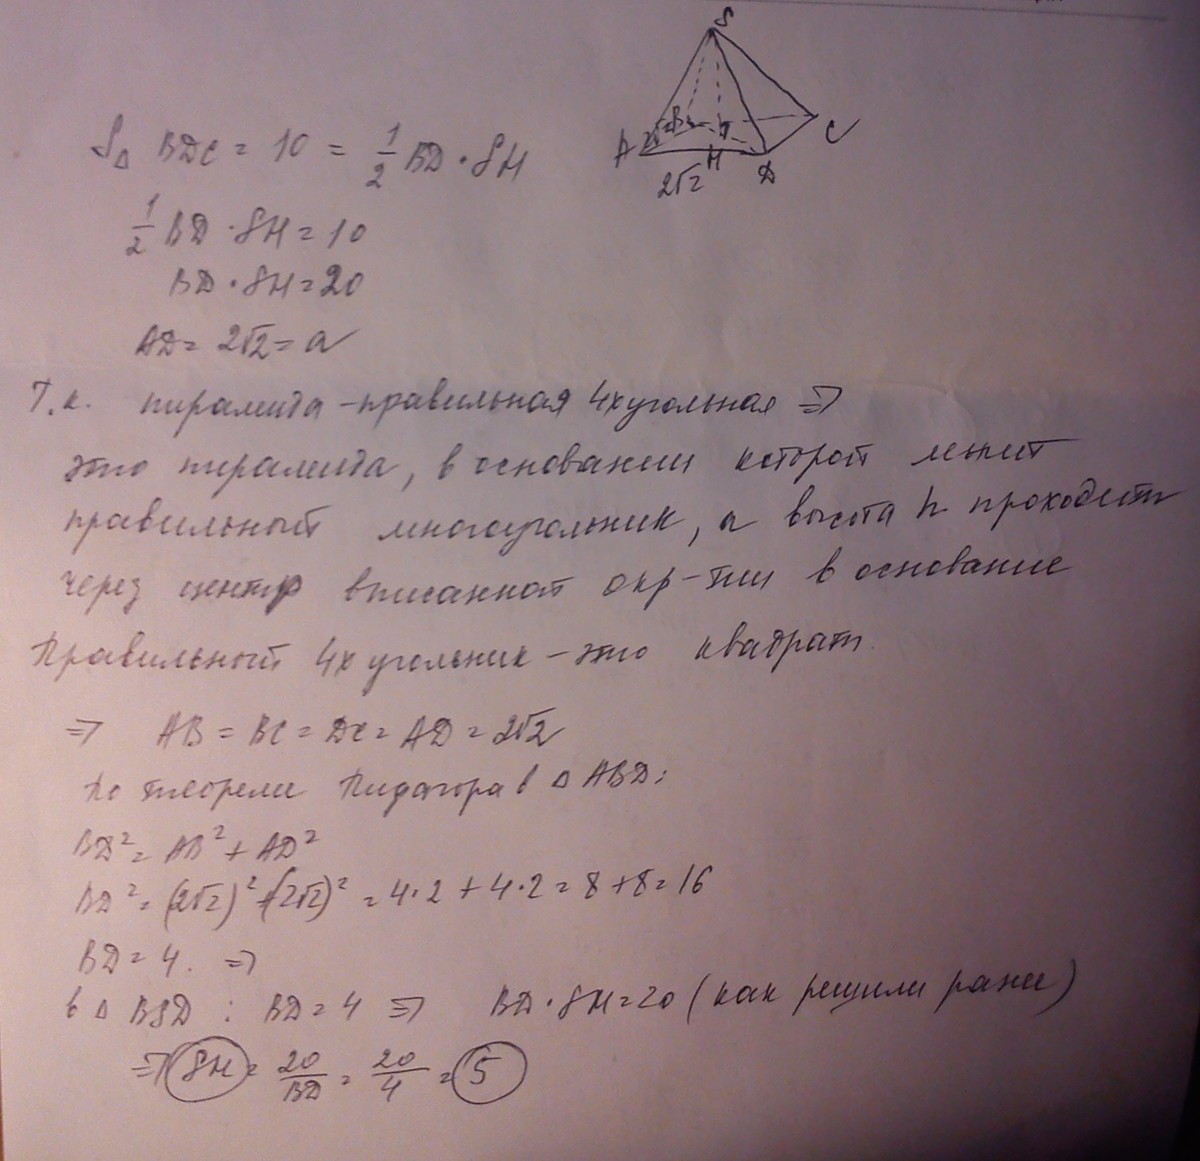 S
A
B
C
H
D
2√2
S△ BDC = 10 = 1/2 BD · SH
1/2 BD · SH = 10
BD · SH = 20
AD = 2√2 = a
Т.к. пирамида - правильная 4хугольная ⇒
это пирамида, в основании которой лежит
правильный многоугольник, а высота h проходит
через центр вписанной окр-ти в основание
Правильный 4х угольник - это квадрат.
⇒ AB = BC = DC = AD = 2√2
По теореме Пифагора в △ ABD:
BD² = AB² + AD²
BD² = (2√2)² + (2√2)² = 4·2 + 4·2 = 8 + 8 = 16
BD = 4. ⇒
в △ BSD : BD = 4 ⇒ BD · SH = 20 (как решили ранее)
⇒ SH = 20/BD = 20/4 = 5